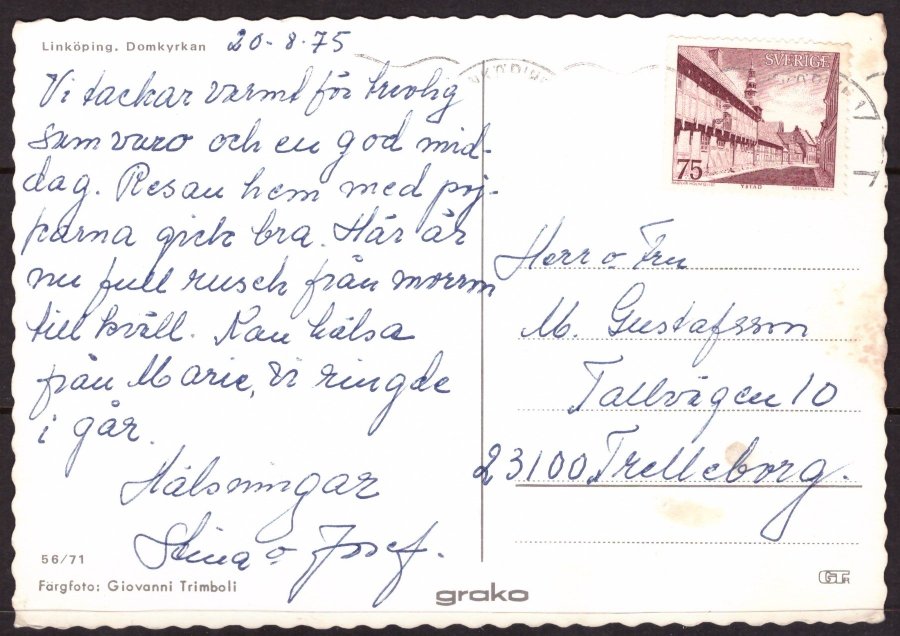 Linköping. Domkyrkan 20-8-75
Vi tackar varmt för trevlig
samvaro och en god mid-
dag. Resan hem med poj-
karna gick bra. Här är
nu full rusch från morron
till kväll. Kan hälsa
från Marie, vi ringde
i går.
Hälsningar
Stina o Josef.
56/71
Färgfoto: Giovanni Trimboli
grako
SVERIGE
75
YSTAD
Herr o Fru
M. Gustafsson
Tallvägen 10
23100 Trelleborg.